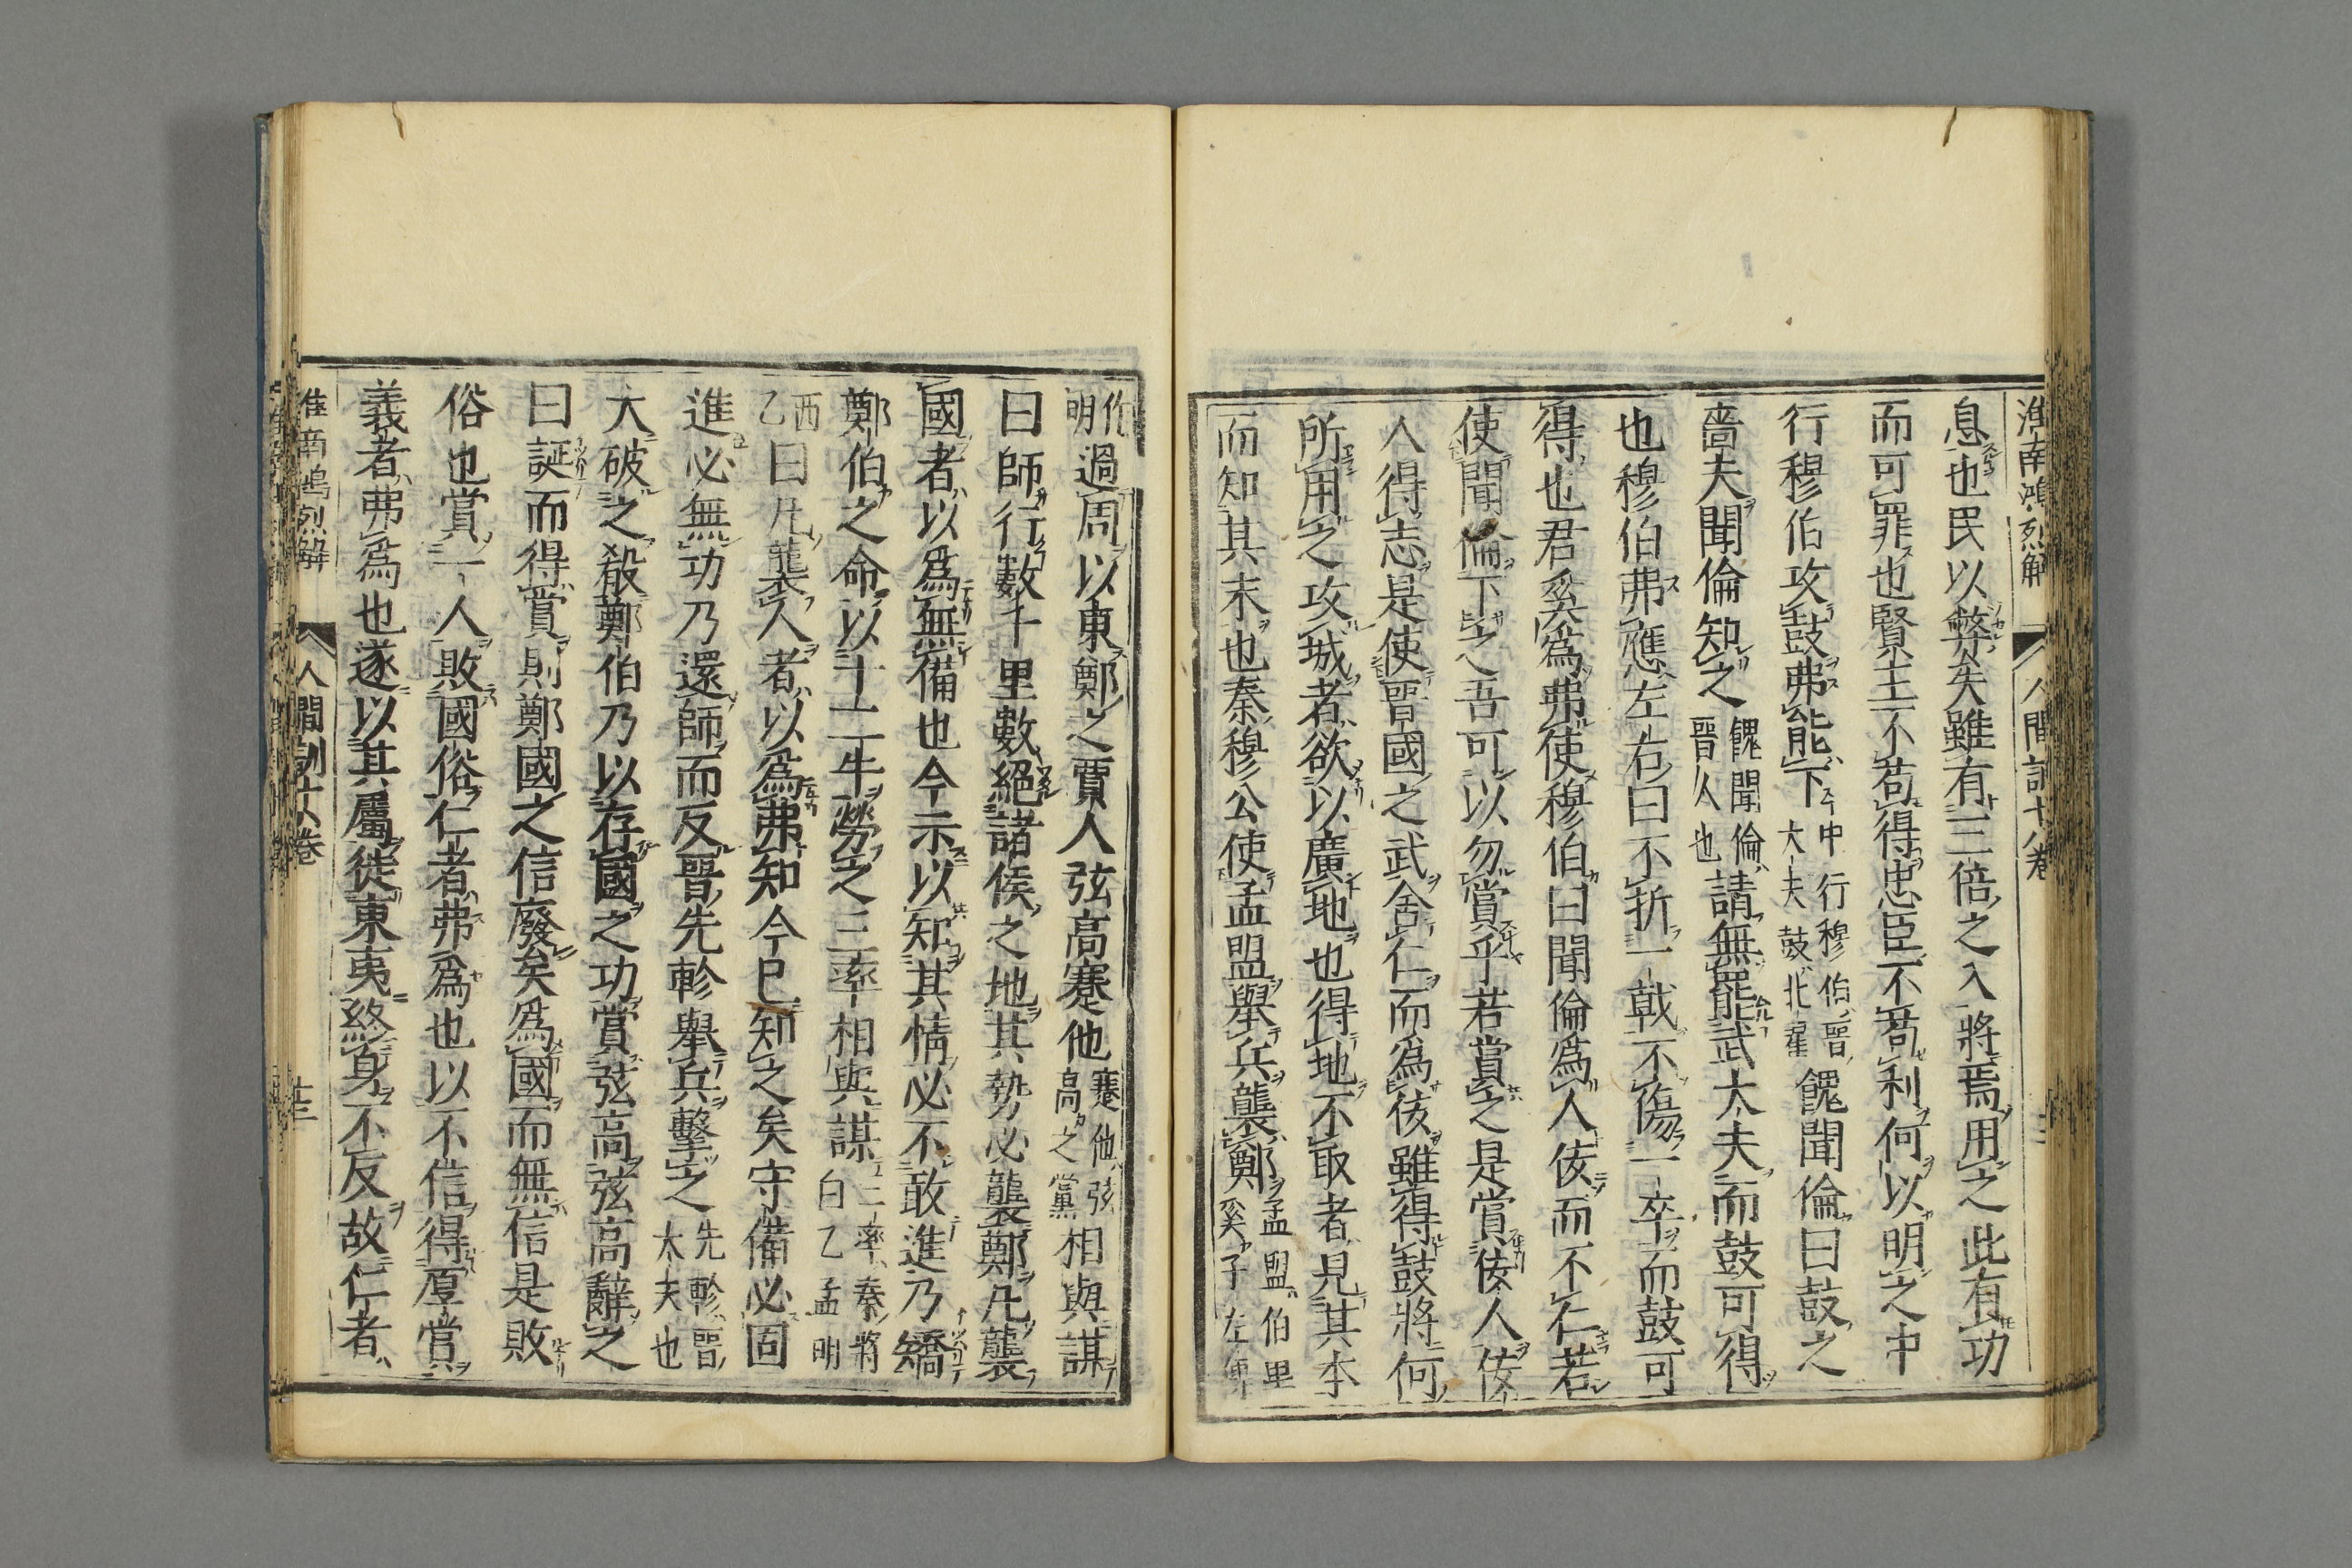 淮南鴻烈解 人間訓十八卷
息也民以弊矣雖有三倍之入將焉用之此有功
而可罪也賢主不苟得忠臣不苟利何以明之中
行穆伯攻鼓弗能下中行穆伯晉大夫鼓北翟餽聞倫曰鼓之
嗇夫聞倫知之餽聞倫晉人也請無罷武大夫而鼓可得
也穆伯弗應左右曰不折一戟不傷一卒而鼓可
得也君奚爲弗使穆伯曰聞倫爲人佞而不仁若
使聞倫下之吾可以勿賞乎若賞之是賞佞人佞
人得志是使晉國之武舍仁而爲佞雖得鼓將何
所用之攻城者欲以廣地也得地不取者見其本
而知其末也秦穆公使孟盟舉兵襲鄭孟盟伯里奚子左傳
作明過周以東鄭之賈人弦高蹇他蹇他弦高之黨相與謀
曰師行數千里數絕諸侯之地其勢必襲鄭凡襲
國者以爲無備也今示以知其情必不敢進乃矯
鄭伯之命以十二牛勞之三率相與謀三率秦將白乙孟明
西乙曰凡襲人者以爲弗知今已知之矣守備必固
進必無功乃還師而反晉先軫舉兵擊之先軫晉大夫也
大破之殽鄭伯乃以存國之功賞弦高弦高辭之
曰誕而得賞則鄭國之信廢矣爲國而無信是敗
俗也賞一人敗國俗仁者弗爲也以不信得厚賞
義者弗爲也遂以其屬徙東夷終身不反故仁者
淮南鴻烈解 人間訓十八卷 十三